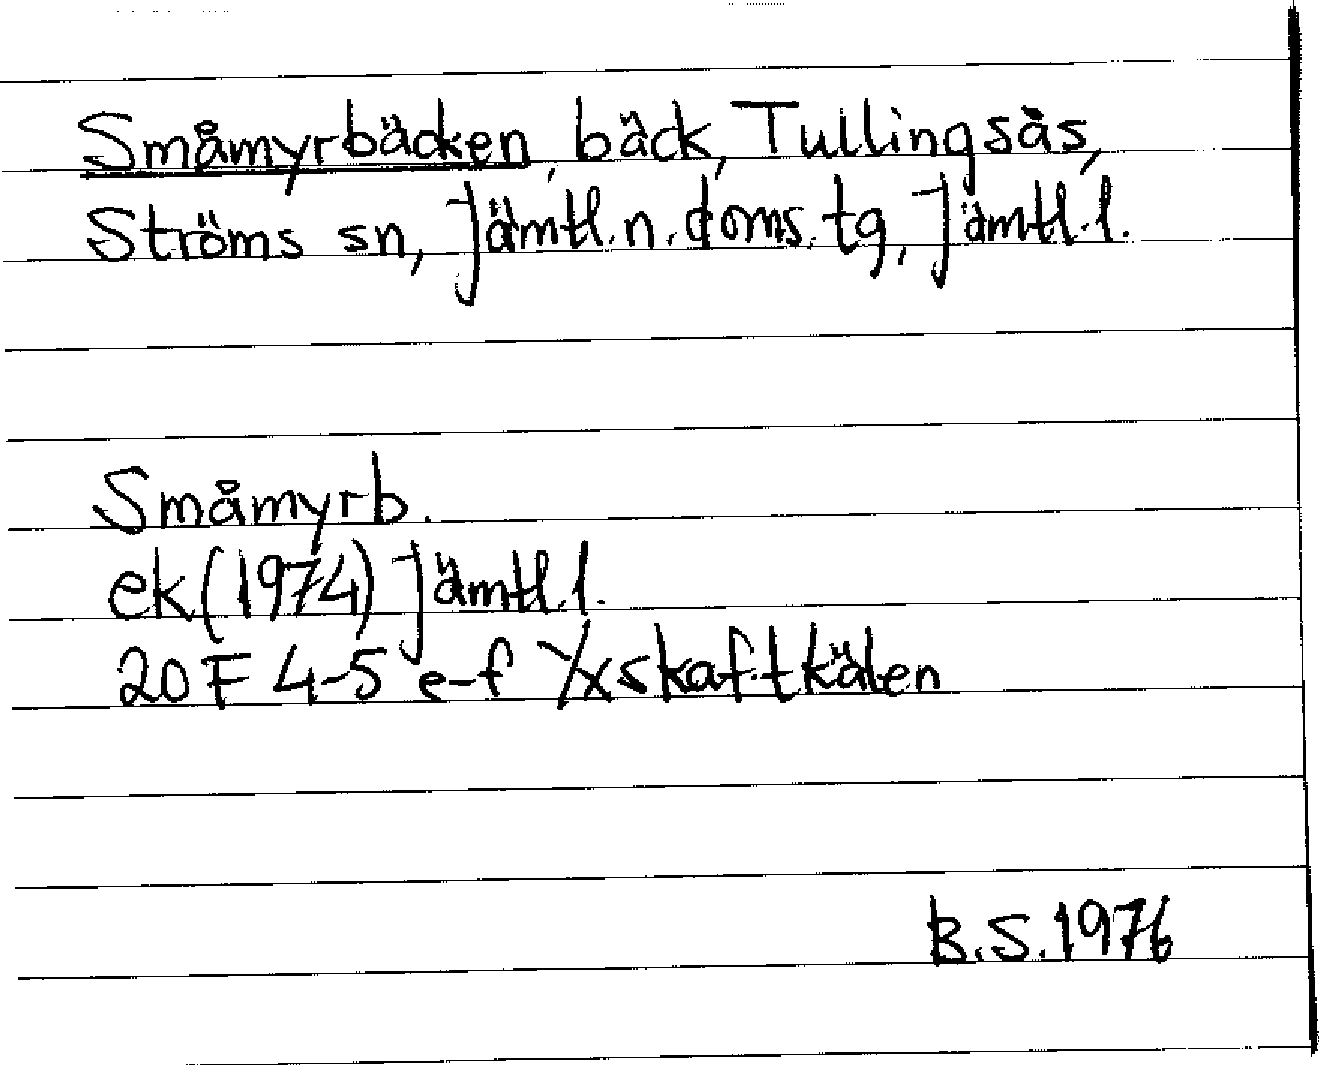 Småmyrbäcken, bäck, Tullingsås,
Ströms sn, Jämtl.n.doms.tg, Jämtl.l.
Småmyrb.
ek (1974) Jämtl.l.
20F 4-5 e-f Yxskaftkälen
B.S.1976